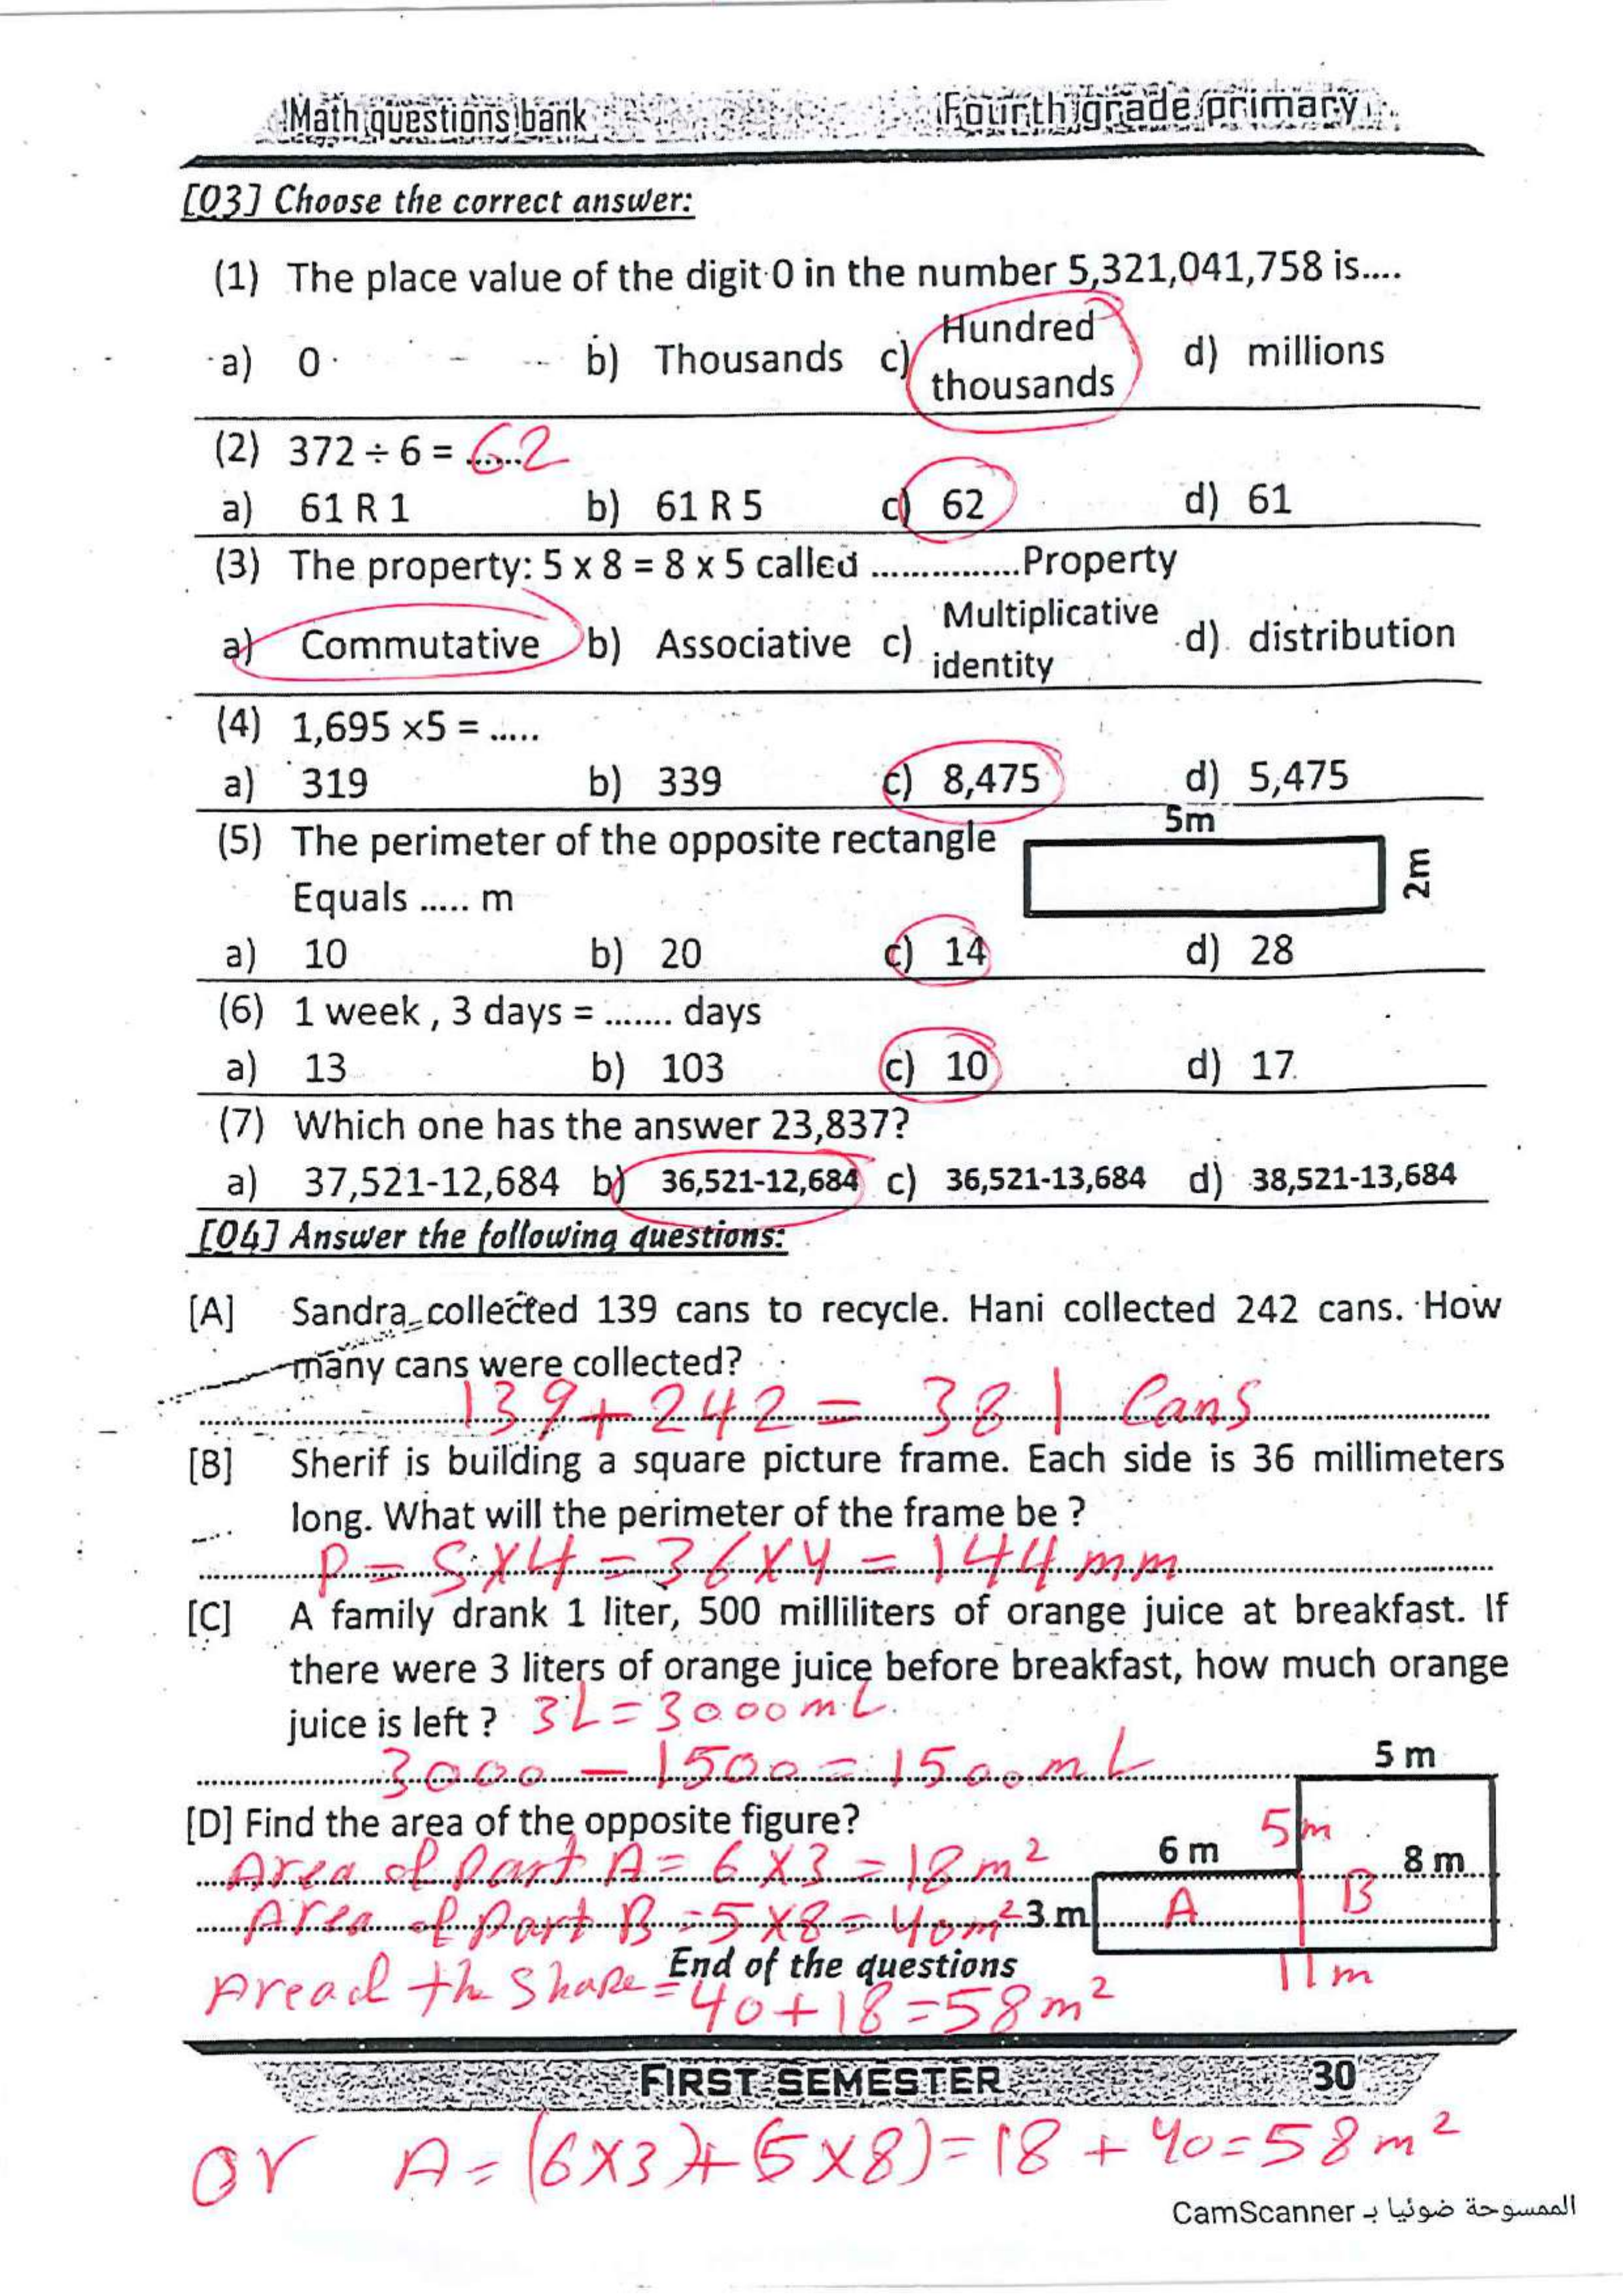 Math questions bank Fourth grade primary
[03] Choose the correct answer:
(1) The place value of the digit 0 in the number 5,321,041,758 is....
a) 0 b) Thousands c) Hundred thousands d) millions
(2) 372 ÷ 6 = ...... 62
a) 61 R 1 b) 61 R 5 c) 62 d) 61
(3) The property: 5 x 8 = 8 x 5 called ...............Property
a) Commutative b) Associative c) Multiplicative identity d) distribution
(4) 1,695 ×5 = .....
a) 319 b) 339 c) 8,475 d) 5,475
(5) The perimeter of the opposite rectangle
5m
2m
Equals ..... m
a) 10 b) 20 c) 14 d) 28
(6) 1 week , 3 days = ....... days
a) 13 b) 103 c) 10 d) 17
(7) Which one has the answer 23,837?
a) 37,521-12,684 b) 36,521-12,684 c) 36,521-13,684 d) 38,521-13,684
[04] Answer the following questions:
[A] Sandra collected 139 cans to recycle. Hani collected 242 cans. How
many cans were collected?
139+242 = 381 Cans
[B] Sherif is building a square picture frame. Each side is 36 millimeters
long. What will the perimeter of the frame be ?
P = S×4 = 36×4 = 144 mm
[C] A family drank 1 liter, 500 milliliters of orange juice at breakfast. If
there were 3 liters of orange juice before breakfast, how much orange
juice is left ? 3L = 3000 mL
3000 - 1500 = 1500 mL
5 m
[D] Find the area of the opposite figure?
5m
6 m
8 m
Area of part A = 6×3 = 18 m²
A
B
Area of part B = 5×8 = 40m²
3 m
End of the questions
11m
Area of the shape = 40+18 = 58 m²
FIRST SEMESTER 30
or A = (6×3)+(5×8) = 18 + 40 = 58 m²
الممسوحة ضوئيا بـ CamScanner